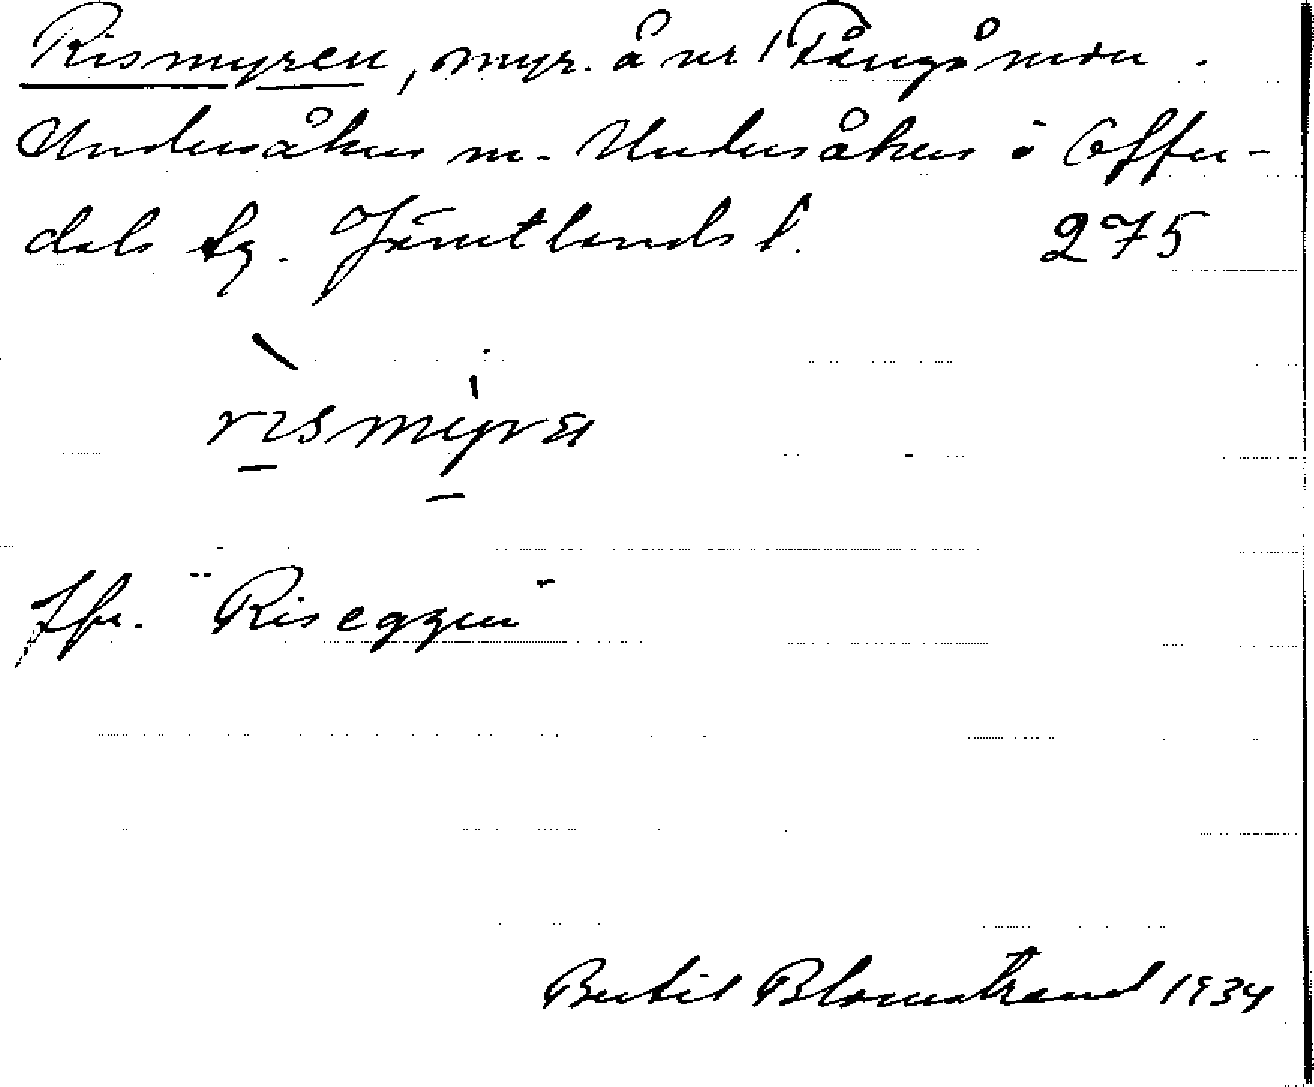 Rismyren, myr. å nr 1 Vångåmon.
Undersåkers sn. Undersåkers o Offer-
dals tg. Jämtlands l. 275
rismyra
Jfr. "Riseggen"
Bertil Blomstrand 1934